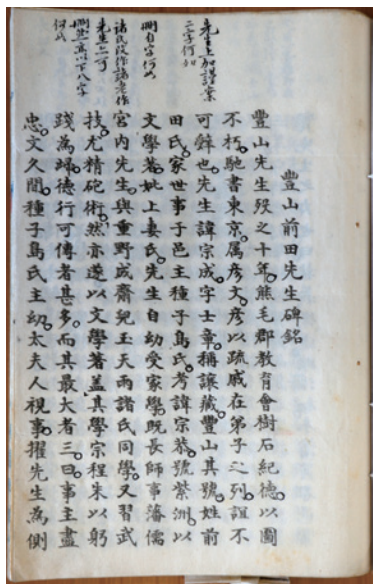 先生上加謹案
二字何如
刪自字何如
諸氏改作諸老作
先生亦可
刪其以下八字
何如
豐山前田先生碑銘
豐山先生歿之十年熊毛郡教育會樹石紀德以圖
不朽馳書東京屬彥文彥以疏戚在弟子之列誼不
可辭也先生諱宗成字士章稱讓藏豐山其號姓前
田氏家世事于邑主種子島氏考諱宗恭號紫洲以
文學著妣上妻氏先生自幼受家學既長師事藩儒
宮内先生與重野成齋兒玉天雨諸氏同學又習武
技尤精砲術然亦遂以文學著蓋其學宗程朱以躬
踐為歸德行可傳者甚多而其最大者三曰事主盡
忠文久間種子島氏主幼太夫人視事擢先生為側